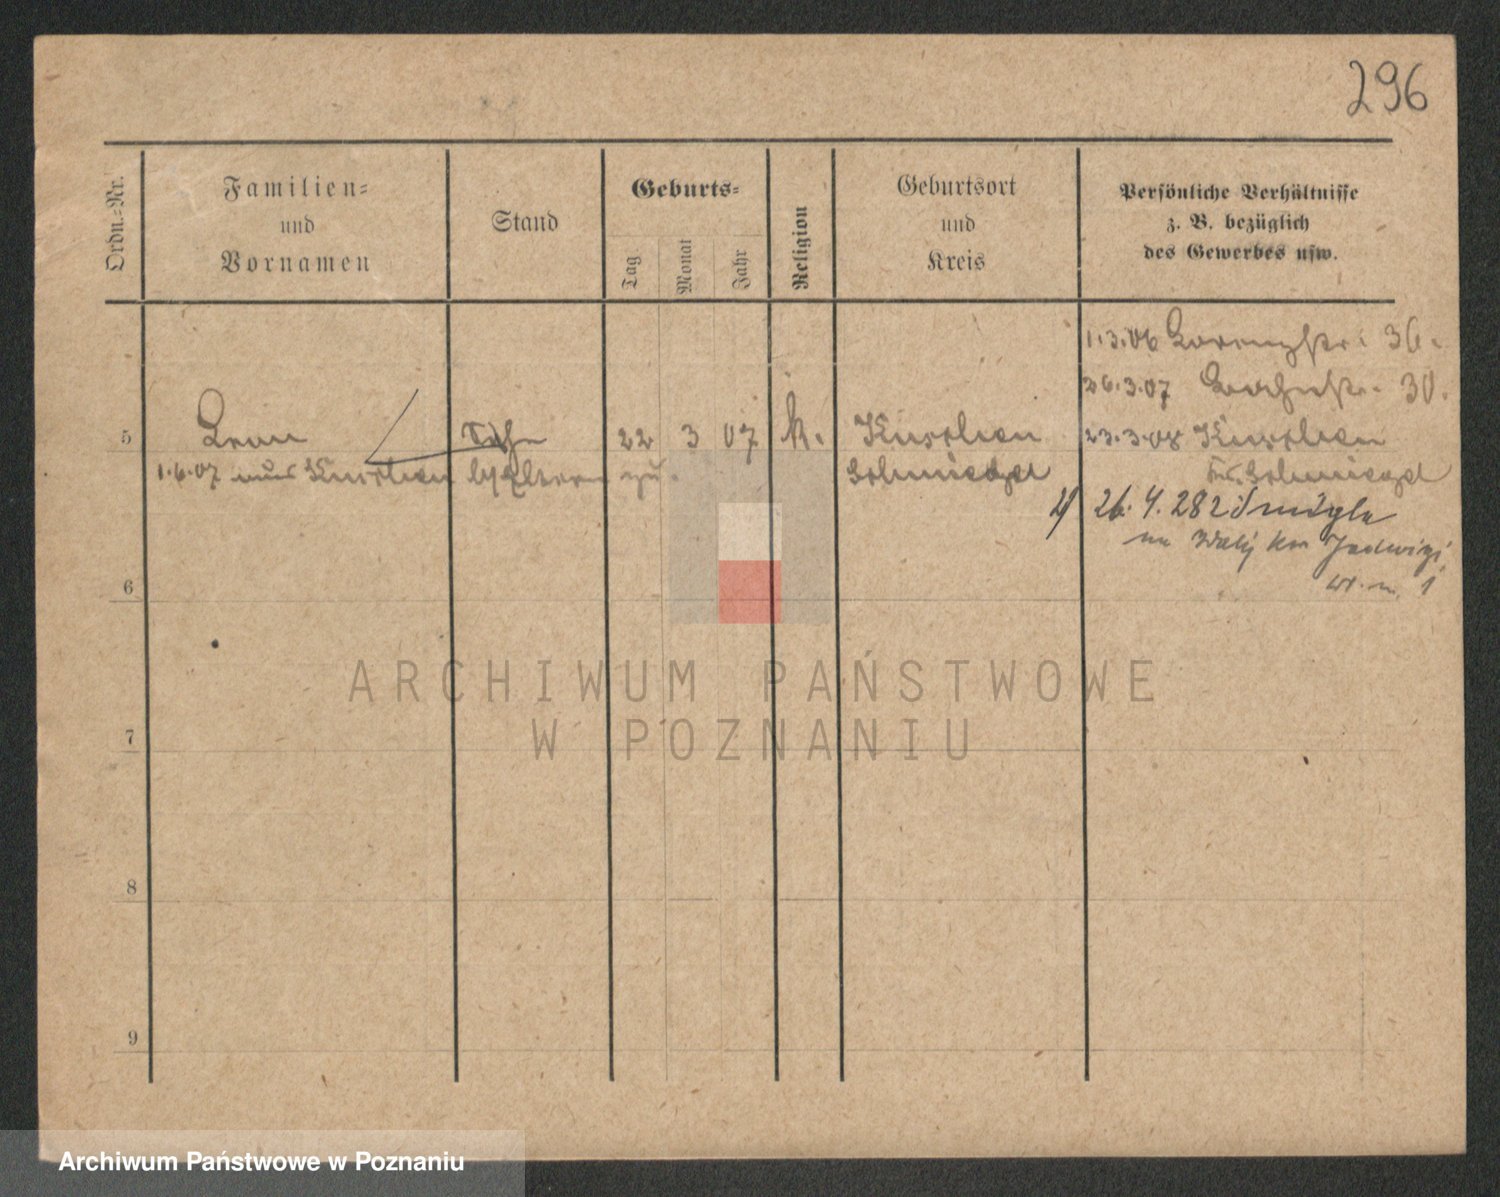 296
Ordn.-Nr.
Familien-
und
Vornamen
Stand
Geburts-
Tag
Monat
Jahr
Religion
Geburtsort
und
Kreis
Persönliche Verhältnisse
z. B. bezüglich
des Gewerbes usw.
1.3.06 36.
26.3.07 30.
5 Leon Sohn 22 3 07 k. Kurthen 23.3.08 Kurthen
1.6.07 aus Kurthen zu. Schmiegel Kr. Schmiegel
26. 4. 28 Śmigla
na Wały Jadwigi
1
6
7
8
9
ARCHIWUM PAŃSTWOWE
W POZNANIU
Archiwum Państwowe w Poznaniu